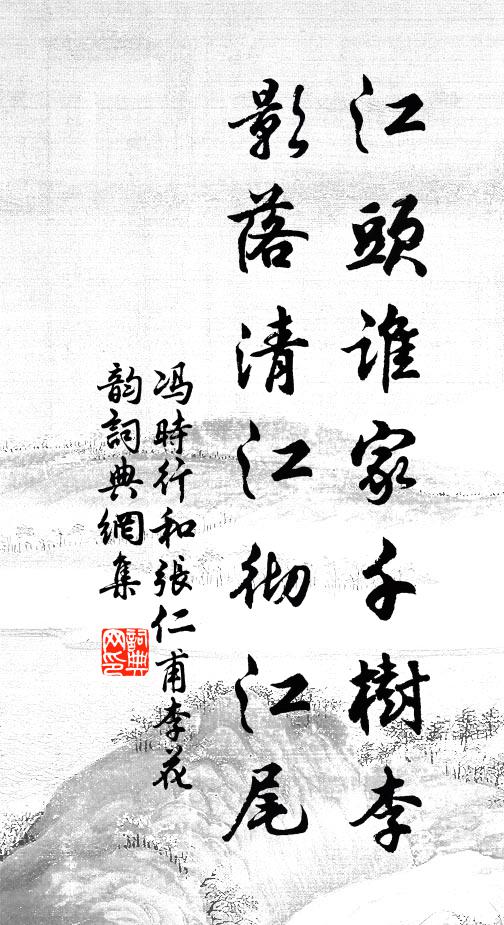 江頭誰家千樹李
影落清江彻江尾
冯時行和張仁甫李花
韵詞典網集
詞典网印